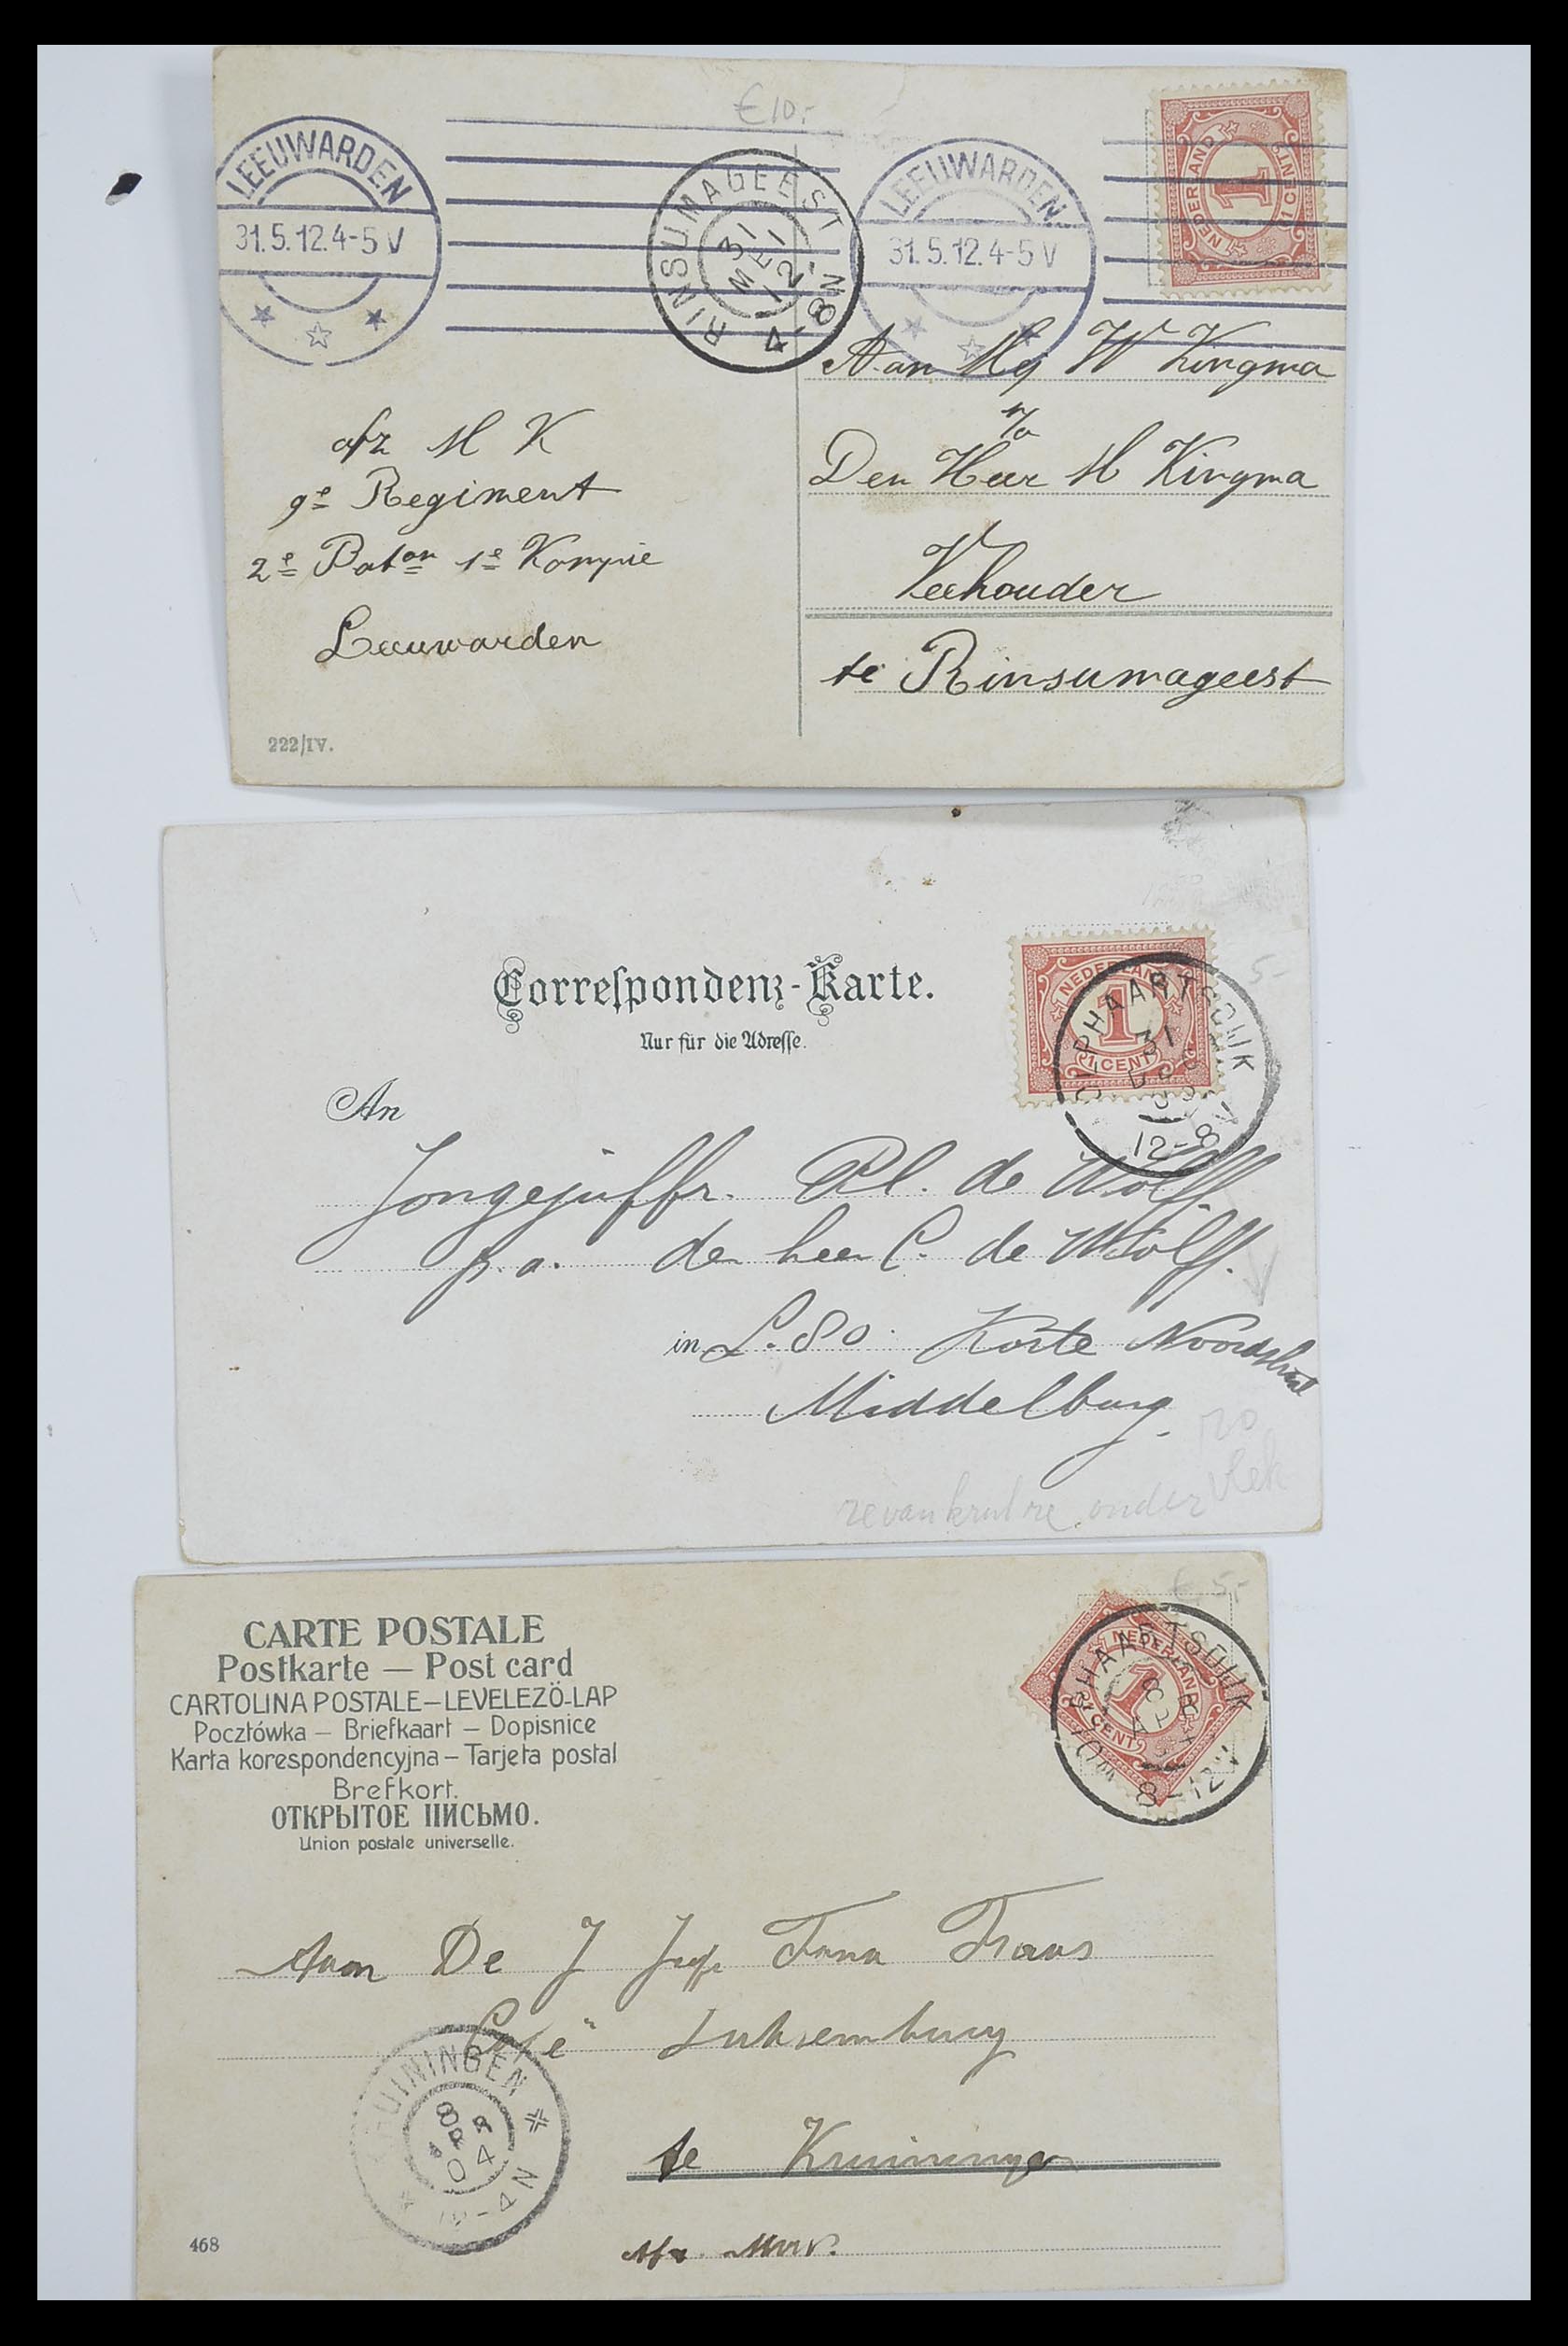 €10,-
LEEUWARDEN
31.5.12.4-5 V
RINSUMAGEEST
31
MEI
12
4-8N
LEEUWARDEN
31.5.12.4-5 V
NEDERLAND
1
1 CENT
Aan Mej W Kingma
p/a
Den Heer M Kingma
Veehouder
te Rinsumageest
afz M K
9e Regiment
2e Baton 1e Kompie
Leeuwarden
222/IV.
Correspondenz-Karte.
Nur für die Adresse.
NEDERLAND
1
1 CENT
31
DEC
12-8V
5-
An
Jongejuffr. Pl. de Wolff.
p.a. den heer C. de Wolff.
in L. 80. Korte Noordstraat
Middelburg.
vlek
onder
€ 5,-
CARTE POSTALE
Postkarte — Post card
CARTOLINA POSTALE—LEVELEZÖ-LAP
Pocztówka — Briefkaart — Dopisnice
Karta korespondencyjna — Tarjeta postal
Brefkort.
ОТКРЫТОЕ ПИСЬМО.
Union postale universelle.
NEDERLAND
1
1 CENT
8
APR
8-12V
Aan De J Juff Frans
Café Luksemburg
te Kruiningen
KRUININGEN
8
APR
04
-4N
Afz.
468